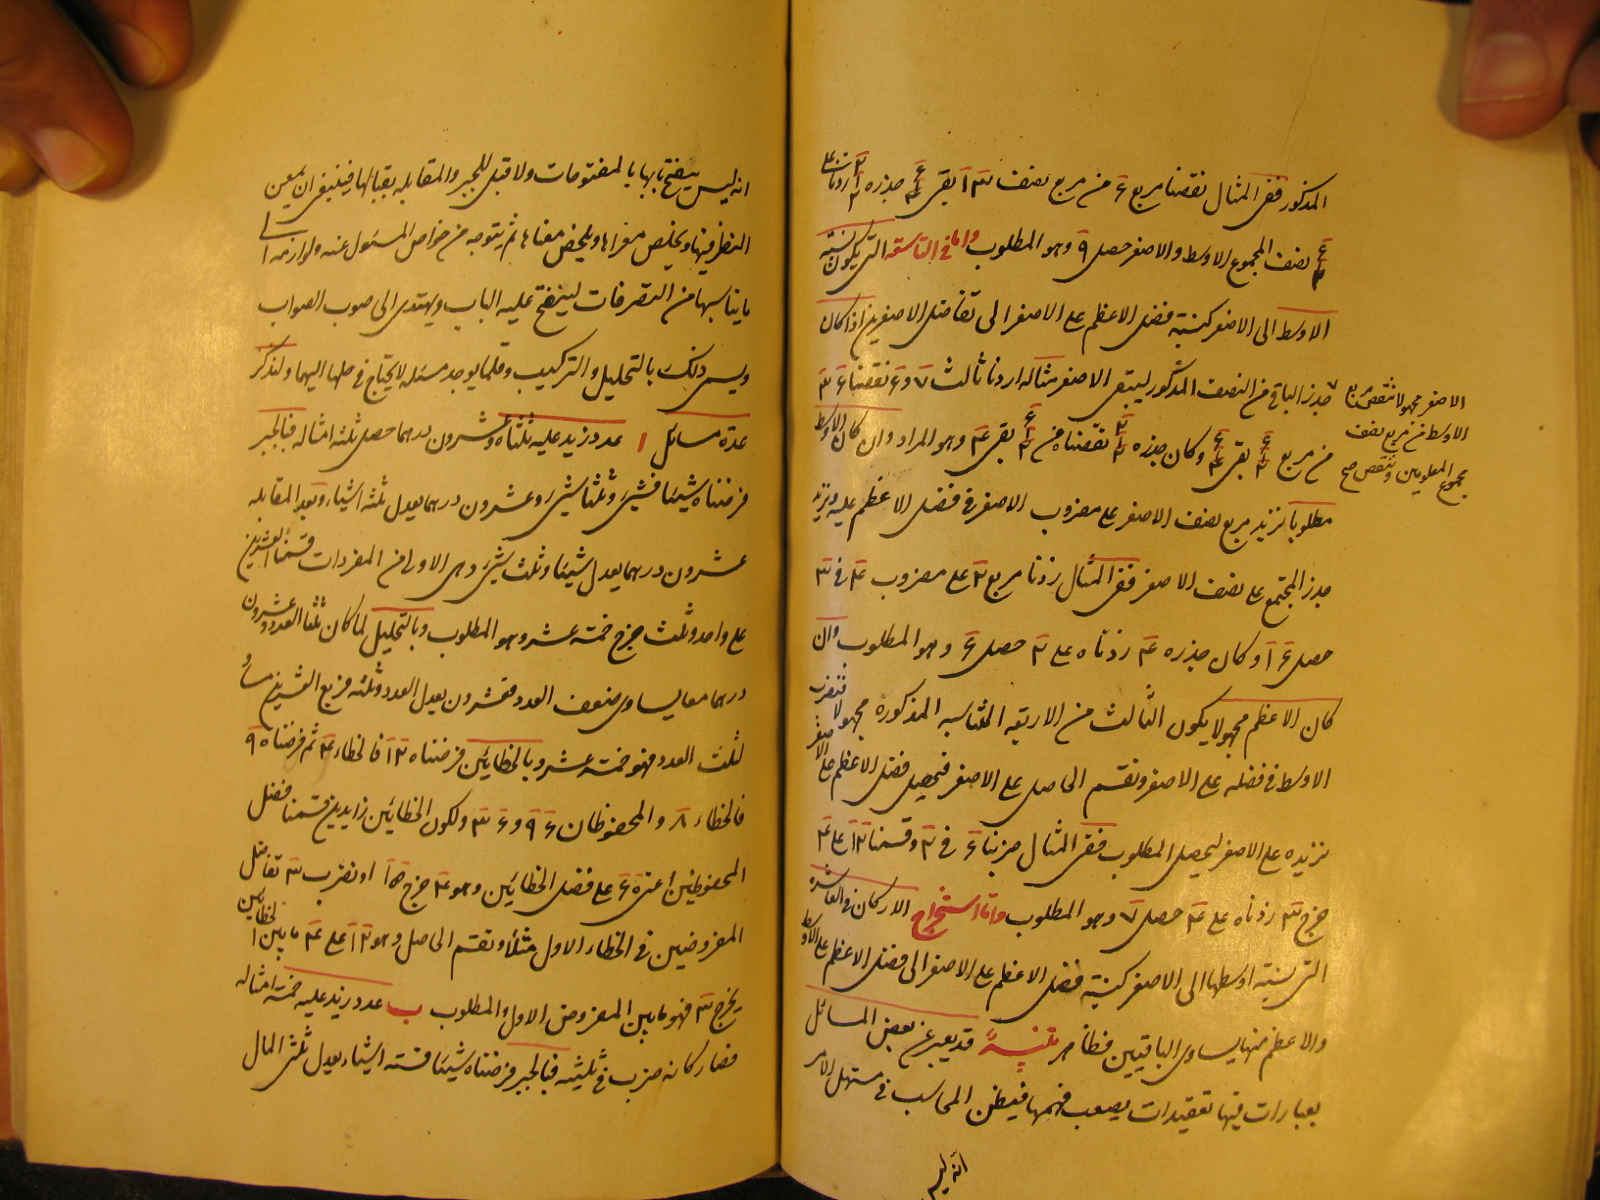 المذكور ففى المثال نقصنا مربع ۶ من مربع نصف ۱۳ بقى جذره زدناه على
نصف المجموع الاوسط والاصغر حصل ۹ وهو المطلوب واما فى التاسعة التى يكون نسبة
الاوسط الى الاصغر كنسبة فضل الاعظم على الاصغر الى تفاضل الاصغرين اذا كان
الاصغر مجهولا ننقص مربع
الاوسط من مربع نصف
مجموع المعلومين وننقص صح
جذر الباقى من النصف المذكور ليبقى الاصغر مثاله اردنا ثالث ۷ و ۶ نقصنا ۶۳
من مربع بقى وكان جذره نقصناه من بقى ۴ وهو المراد وان كان الاوسط
مطلوبا نزيد مربع نصف الاصغر على مضروب الاصغر فى فضل الاعظم عليه ونزيد
جذر المجتمع على نصف الاصغر ففى المثال زدنا مربع ۲ على مضروب ۴ فى ۳
حصل ۱۶ وكان جذره ۴ زدناه على ۲ حصل ۶ وهو المطلوب وان
كان الاعظم مجهولا يكون الثالث من الاربعة المتناسبة المذكورة مجهولا فنضرب
الاوسط فى فضله على الاصغر ونقسم الحاصل على الاصغر فيحصل فضل الاعظم على الاصغر
نزيده على الاصغر ليحصل المطلوب ففى المثال ضربنا ۶ فى ۲ وقسمنا ۱۲ على ۴
خرج ۳ زدناه على ۴ حصل ۷ وهو المطلوب واما استخراج الاركان فى العاشرة
التى نسبة اوسطها الى الاصغر كنسبة فضل الاعظم على الاصغر الى فضل الاعظم على الاوسط
والاعظم منها يساوى الباقيين فظاهر تنبيه قد يعبر عن بعض المسائل
بعبارات فيها تعقيدات يصعب فهمها فيظن المحاسب فى مستهل الامر
انه ليس
انه ليس ينفتح بابها بالمفتوحات ولا قبل للجبر والمقابلة بقبالها فينبغى ان يمعن
النظر فيها ويخلص مغزاها ويلخص معناها ثم يتوجه من خواص المسئول عنه ولوازمه الى
ما يناسبها من التصرفات لينفتح عليه الباب ويهتدى الى صوب الصواب
ويسمى ذلك بالتحليل والتركيب وقلما يوجد مسئلة لا يحتاج فى حلها اليهما ولنذكر
عدة مسائل ا عدد زيد عليه ثلثاه وعشرون درهما حصل ثلثة امثاله فبالجبر
فرضناه شيئا فشىء وثلثا شىء وعشرون درهما يعدل ثلثة اشياء وبعد المقابلة
عشرون درهما يعدل شيئا وثلث شىء وهى الاولى من المفردات قسمنا العشرين
على واحد وثلث خرج خمسة عشر وهو المطلوب وبالتحليل لما كان ثلثا العدد وعشرون
درهما معا يساوى ضعف العدد فعشرون يعدل العدد وثلثه فربع العشرين مساو
لثلث العدد فهو خمسة عشر وبالخطايين فرضناه ۱۲ فالخطاء ۴ ثم فرضناه ۹
فالخطاء ۸ والمحفوظان ۹۶ و ۳۶ ولكون الخطايين زايدين قسمنا فضل
المحفوظين اعنى ۶۰ على فضل الخطايين وهو ۴ خرج ۱۵ او نضرب ۳ تفاضل
المفروضين فى الخطاء الاول مثلا ونقسم الحاصل وهو ۱۲ على ۴ مابين الخطايين
يخرج ۳ فهو مابين المفروض الاول والمطلوب ب عدد زيد عليه خمسة امثاله
فصار كانه ضرب فى ثلثيه فبالجبر فرضناه شيئا فستة اشياء يعدل ثلثى المال